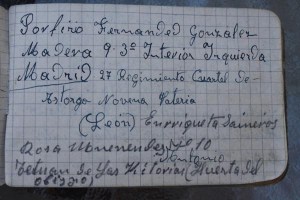 Porfirio Fernandez Gonzalez
Madera 9-3º Interior Izquerda
Madrid 27 Regimiento Cuartel de
Astorgo Novena Vateria
(León) Enrriqueta
Rosa Menendez Nº 10
Antonio
Tetuan de las Vitorias (Huerta del
Obispo)